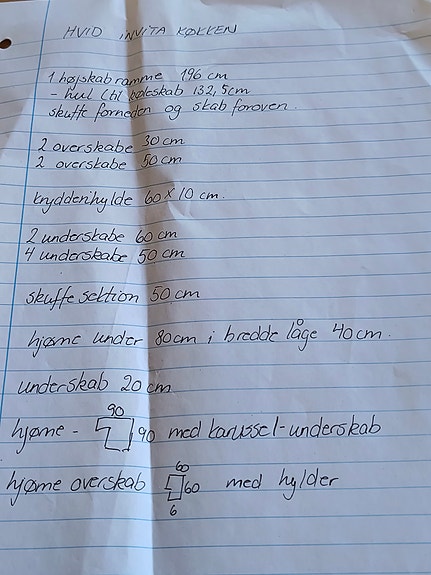 HVID INVITA KØKKEN
1 højskabramme 196 cm
- hul (til køleskab 132,5cm
skuffe forneden og skab foroven.
2 overskabe 30 cm
2 overskabe 50 cm
krydderihylde 60 x 10 cm.
2 underskabe 60 cm
4 underskabe 50 cm
skuffe sektion 50 cm
hjørne under 80cm i bredde låge 40cm.
underskab 20 cm
90
hjørne - 90 med karussel-underskab
60
hjørne overskab 60 med hylder
6